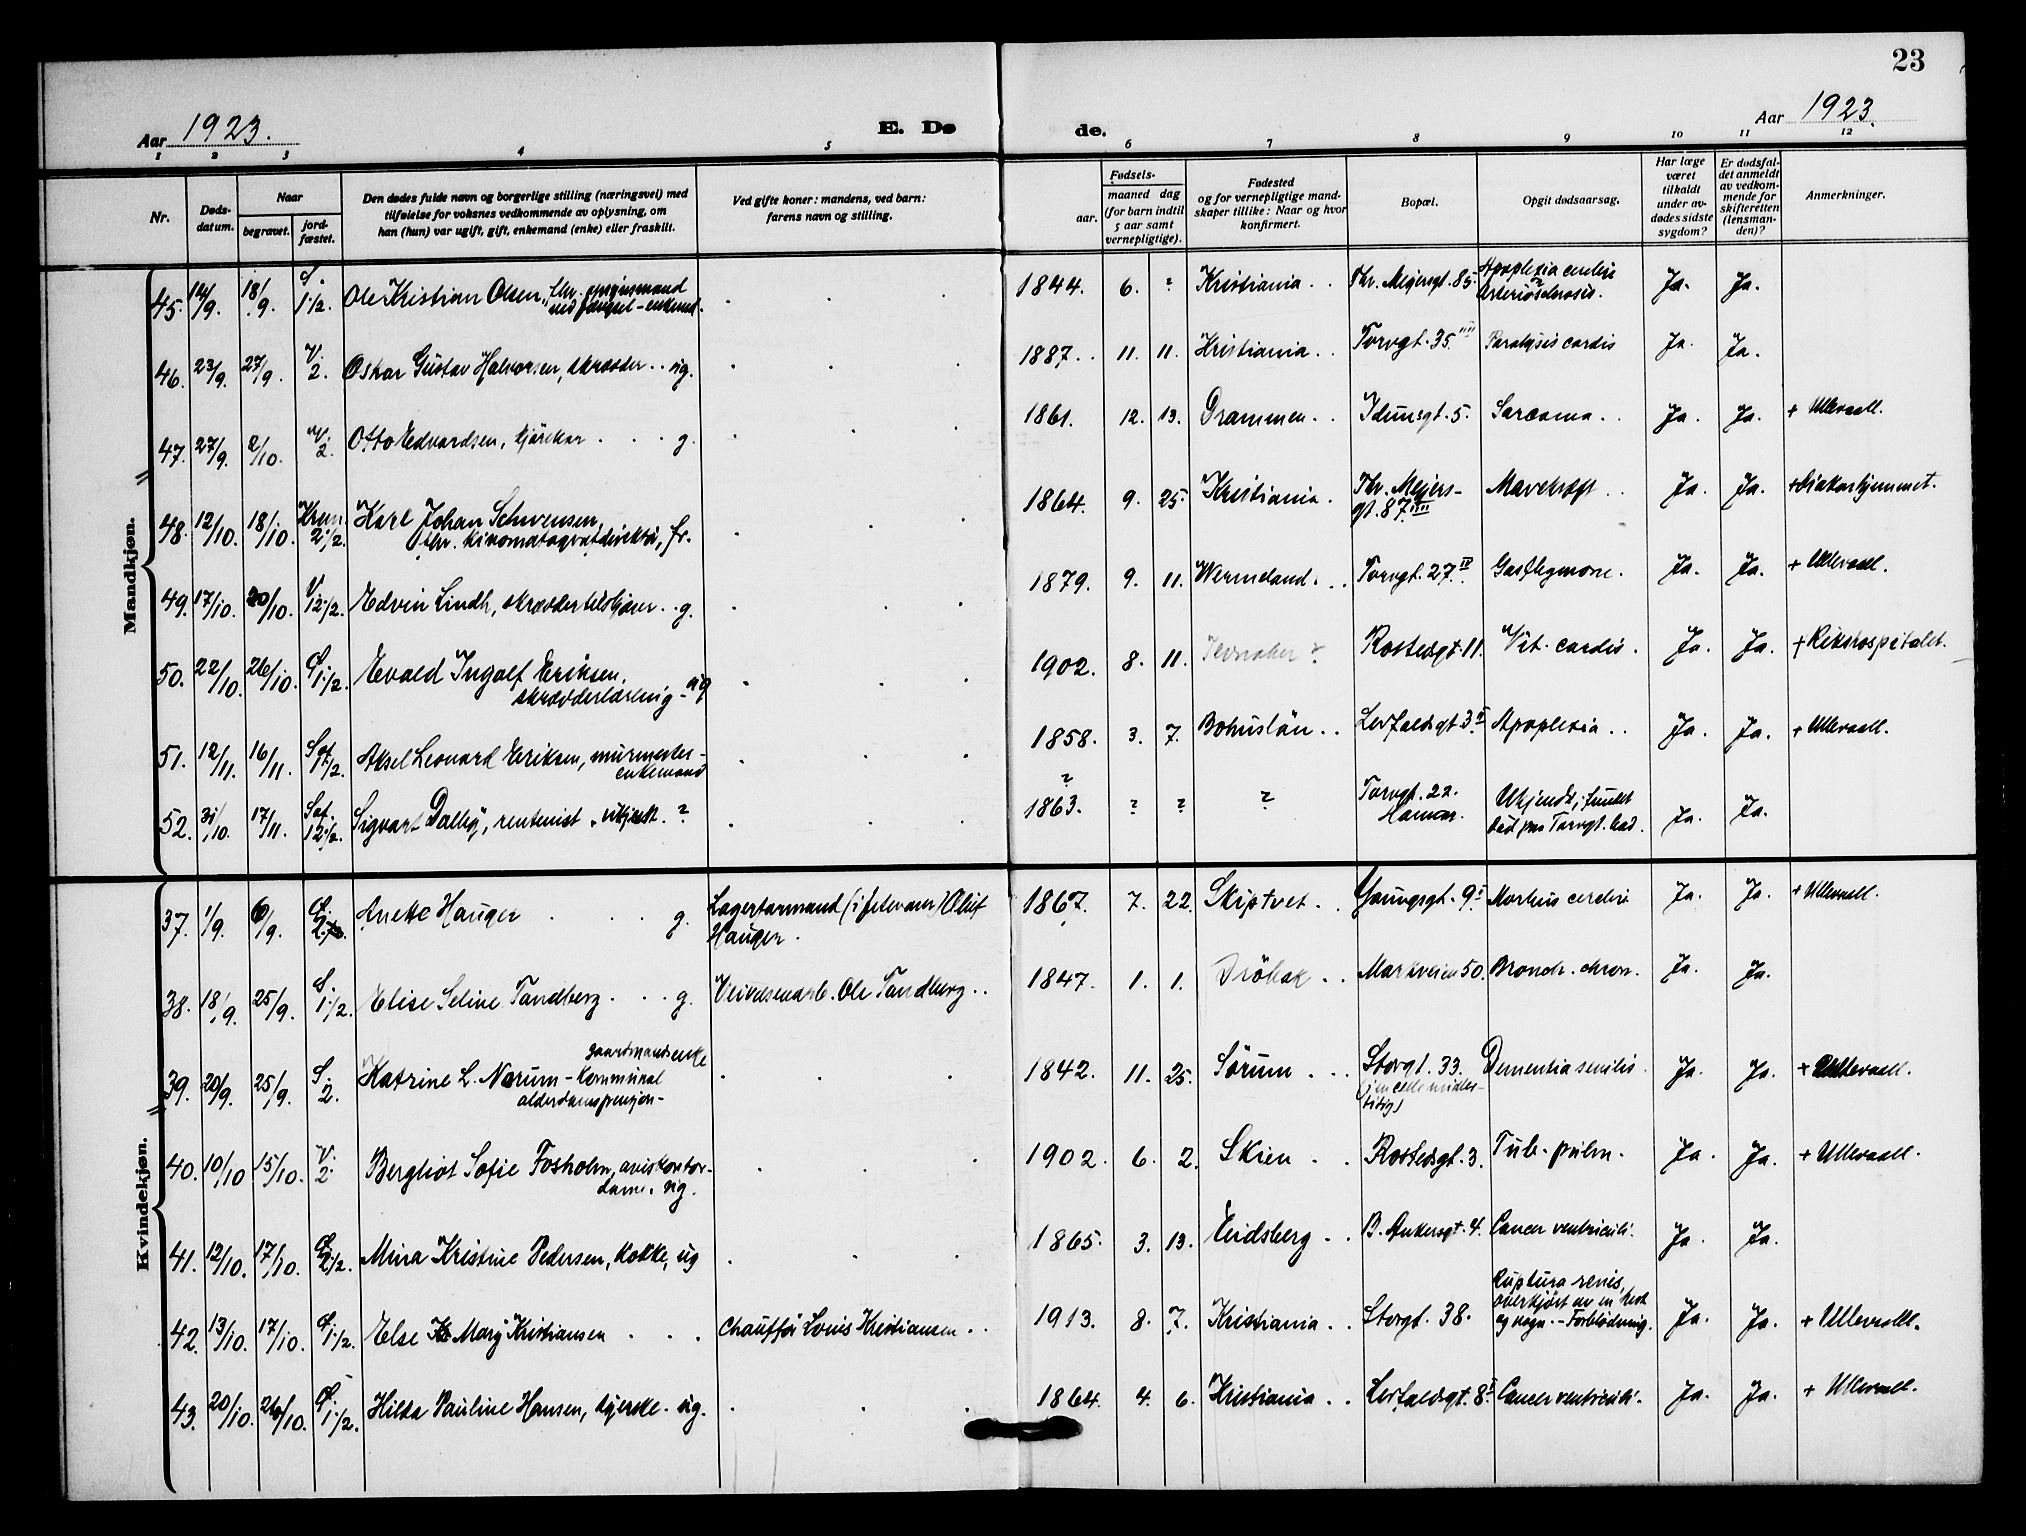 23
Aar 1923.
E. Dø
de.
Aar 1923.
1 2 3 4 5 6 7 8 9 10 11 12
Nr.
Døds-
datum.
Naar
begravet.
jord-
fæstet.
Den dødes fulde navn og borgerlige stilling (næringsvei) med
tilføielse for voksnes vedkommende av oplysning, om
han (hun) var ugift, gift, enkemand (enke) eller fraskilt.
Ved gifte koner: mandens, ved barn:
farens navn og stilling.
Fødsels-
aar.
maaned dag
(for barn indtil
5 aar samt
vernepligtige).
Fødested
og for vernepligtige mand-
skaper tillike: Naar og hvor
konfirmert.
Bopæl.
Opgit dødsaarsag.
Har læge
været
tilkaldt
under av-
dødes sidste
sygdom?
Er dødsfal-
det anmeldt
av vedkom-
mende for
skifteretten
(lensman-
den)?
Anmerkninger.
Mandkjøn.
45. 14/9. 18/9. L. 1 1/2. Ole Kristian Olsen, - enkem. 1844. 6. ? Kristiania Thr. Meijersgt. 85. Apoplexia cerebri Arteriosclerosis. Ja. Ja.
46. 23/9. 27/9. V. 2. Oskar Gustav Halvorsen, skrædder ug. 1887. 11. 11. Kristiania Torvgt. 35 IIII Paralysis cordis Ja. Ja.
47. 27/9. 2/10. V. 2. Otto Edvardsen, kjørekar g. 1861. 12. 13. Drammen Idunsgt. 5. Sarcoma Ja. Ja. + Ullevaall.
48. 12/10. 18/10. Krem. 2 1/2. Karl Johan Schwensen,
fhv. kinomatografdirektør, fr. 1864. 9. 25. Kristiania. Thr. Meijers-
gt. 87 IIII Mavekræft Ja. Ja. + Diakonhjemmet.
49. 17/10. 20/10. V. 12 1/2. Edvin Lindh, skræddertilskjærer g. 1879. 9. 11. Wermeland. Torvgt. 27 IV Gasflegmone. Ja. Ja. + Ullevaall.
50. 22/10. 26/10. L. 1 1/2. Evald Ingolf Eriksen,
skrædderlærling - ug 1902. 8. 11. Jevnaker ? Rostedsgt. 11. Vit. cordis. Ja. Ja. + Rikshospitalet.
51. 12/11. 16/11. Sgt. 1 1/2. Aksel Leonard Eriksen, murmester -
enkemand 1858. 3. 7. Bohuslän Lerfaldsgt. 3 II Apoplexia Ja. Ja. + Ullevaall.
52. 31/10. 17/11. Sgt. 12 1/2. Sigvart Dalby, rentenist, ukjendt. ? ? 1863. ? ? ? Torvgt. 22.
Hamar. Ukjendt; fundet
død paa Torvgt. bad. Ja. Ja.
Kvindekjøn.
37. 1/9. 6/9. L. 2 Anette Hauger g. Lagerformand (i jernvarer) Oluf
Hauger. 1867. 7. 22. Skiptvet Youngsgt. 9 I Morbus cerebri Ja. Ja. + Ullevaall.
38. 18/9. 25/9. L. 1 1/2. Elise Seline Tandberg g. Veivæsenarb. Ole Tandberg 1847. 1. 1. Drøbak Markveien 50. Bronch. chron. Ja. Ja.
39. 20/9. 25/9. L. 2. Katrine L. Norum - gaardmandsenke
kommunal
alderdomspensjon - 1842. 11. 25. Sørum Storgt. 33.
Dementia senilis. Ja. Ja. + Ullevaall.
40. 10/10 15/10. V. 2. Bergliot Sofie Fosholm, aviskontor-
dame. ug. 1902. 6. 2. Skien Rostedsgt. 3. Tub. pulm. Ja. Ja. + Ullevaall.
41. 12/10. 17/10. L. 2 1/2. Mina Kristine Pedersen, kokke, ug 1865. 3. 13. Eidsberg B. Ankersgt. 4. Cancer ventriculi. Ja. Ja.
42. 13/10. 17/10. L. 1 1/2. Else Mary Kristiansen Chauffør Louis Kristiansen 1913. 8. 7. Kristiania Storgt. 38. Ruptura renis,
overkjørt av en hest
og vogn. - Forblødning. Ja. Ja. + Ullevaall.
43. 20/10. 26/10. L. 1 1/2. Hilda Pauline Hansen, syerske. ug. 1864. 4. 6. Kristiania Lerfaldsgt. 8 I Cancer ventriculi. Ja. Ja. + Ullevaall.